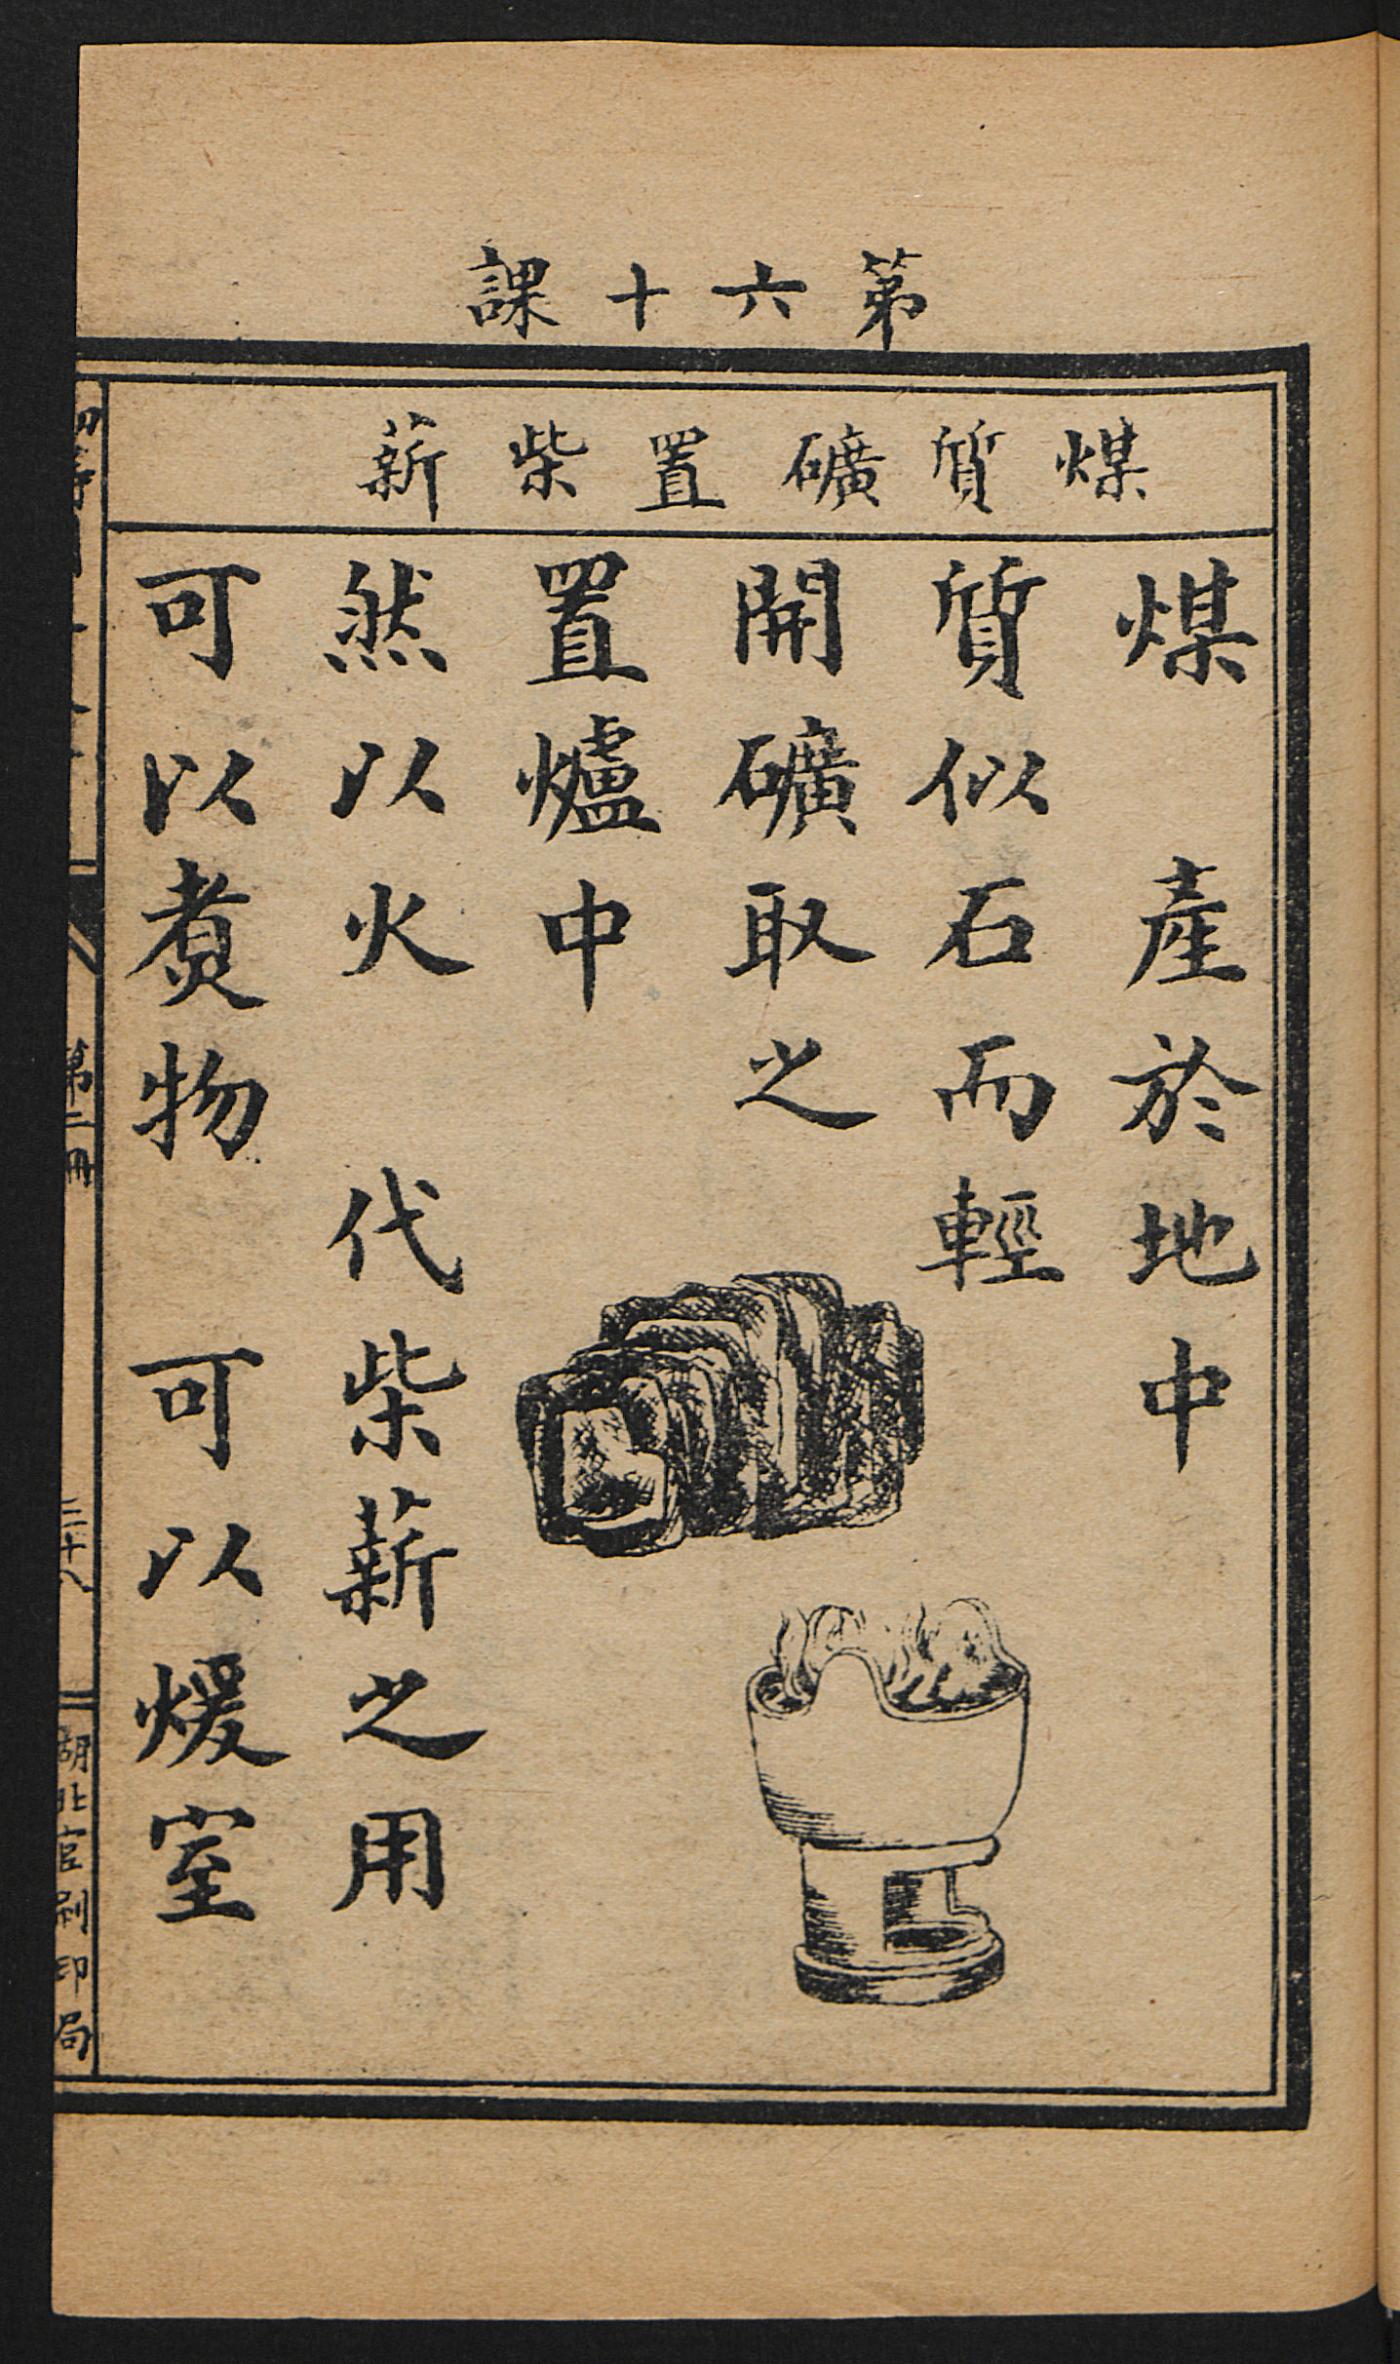 第六十課
煤質礦置柴薪
煤　產於地中
質似石而輕
開礦取之
置爐中
然以火　代柴薪之用
可以煑物　可以煖室
第二冊
三十八
湖北官刷印局